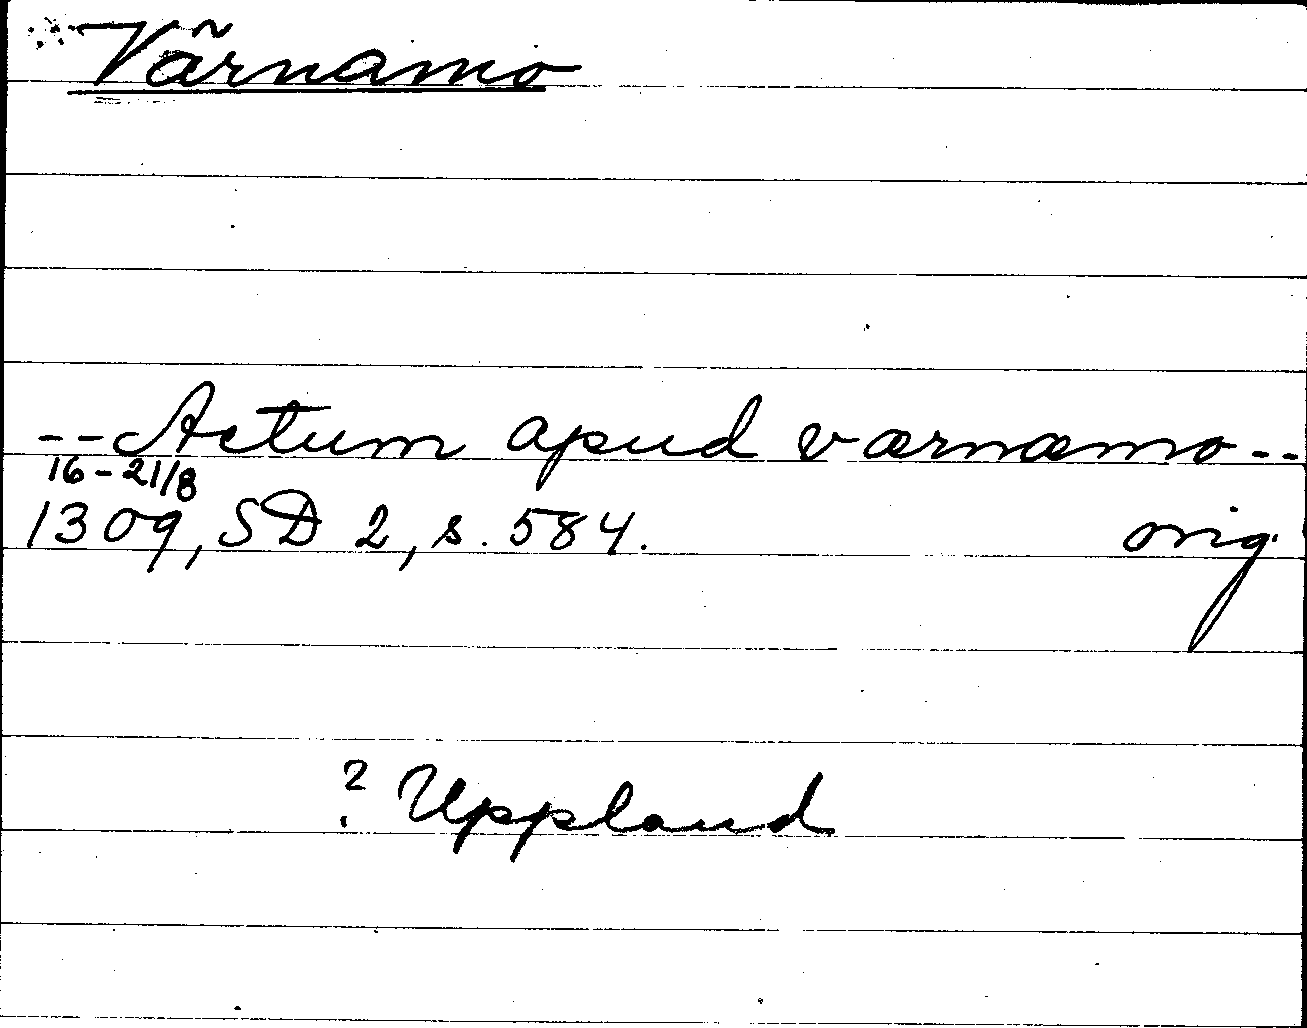 Värnamo
--Actum apud værnæmo--
16-21/8
1309, SD 2, s. 584. orig.
? Uppland